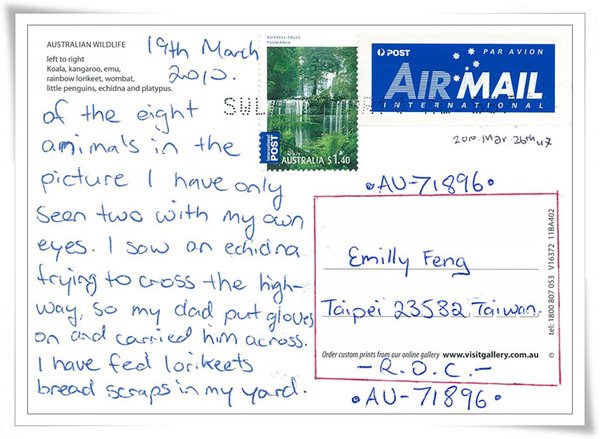 AUSTRALIAN WILDLIFE
left to right
Koala, kangaroo, emu,
rainbow lorikeet, wombat,
little penguins, echidna and platypus.
19th March
2010.
of the eight
animals in the
picture I have only
seen two with my own
eyes. I saw an echidna
trying to cross the high-
way, so my dad put gloves
on and carried him across.
I have fed lorikeets
bread scraps in my yard.
RUSSELL FALLS
TASMANIA
International
POST
AUSTRALIA $1.40
POST
PAR AVION
AIR MAIL
INTERNATIONAL
2010.Mar.26th
AU-71896
Emilly Feng
Taipei 23582 Taiwan
Order custom prints from our online gallery www.visitgallery.com.au
-R.O.C.-
AU-71896
© tel: 1800 807 053 V16372 11BA402